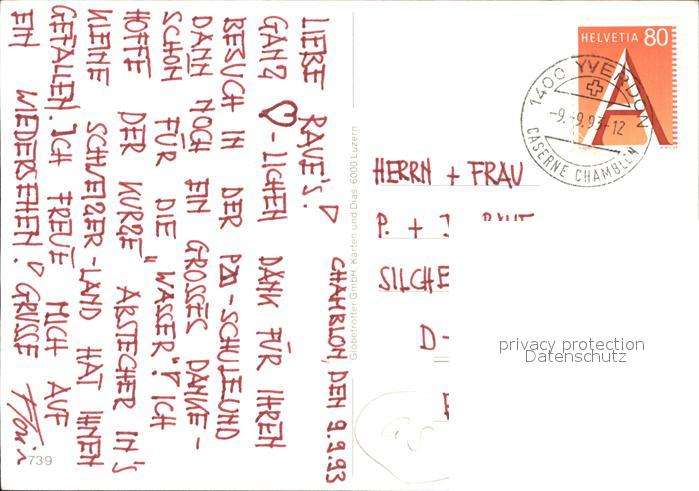 CHAMBLON, DEN 9.9.93
LIEBE RAUE'S!
GANZ ♡-LICHEN DANK FÜR IHREN
BESUCH IN DER PZ-SCHULE UND
DANN NOCH EIN GROSSES DANKE-
SCHÖN FÜR DIE "WASSER"! ICH
HOFFE DER KURZE ABSTECHER IN'S
KLEINE SCHWEIZER-LAND HAT IHNEN
GEFALLEN. ICH FREUE MICH AUF
EIN WIEDERSEHEN! GRÜSSE
739
Globetrotter GmbH. Karten und Dias 6000 Luzern
HELVETIA 80
A
1400 YVERDON
-9.-9.93-12
CASERNE CHAMBLON
HERRN + FRAU
P. +
SILCHE
D-
privacy protection
Datenschutz